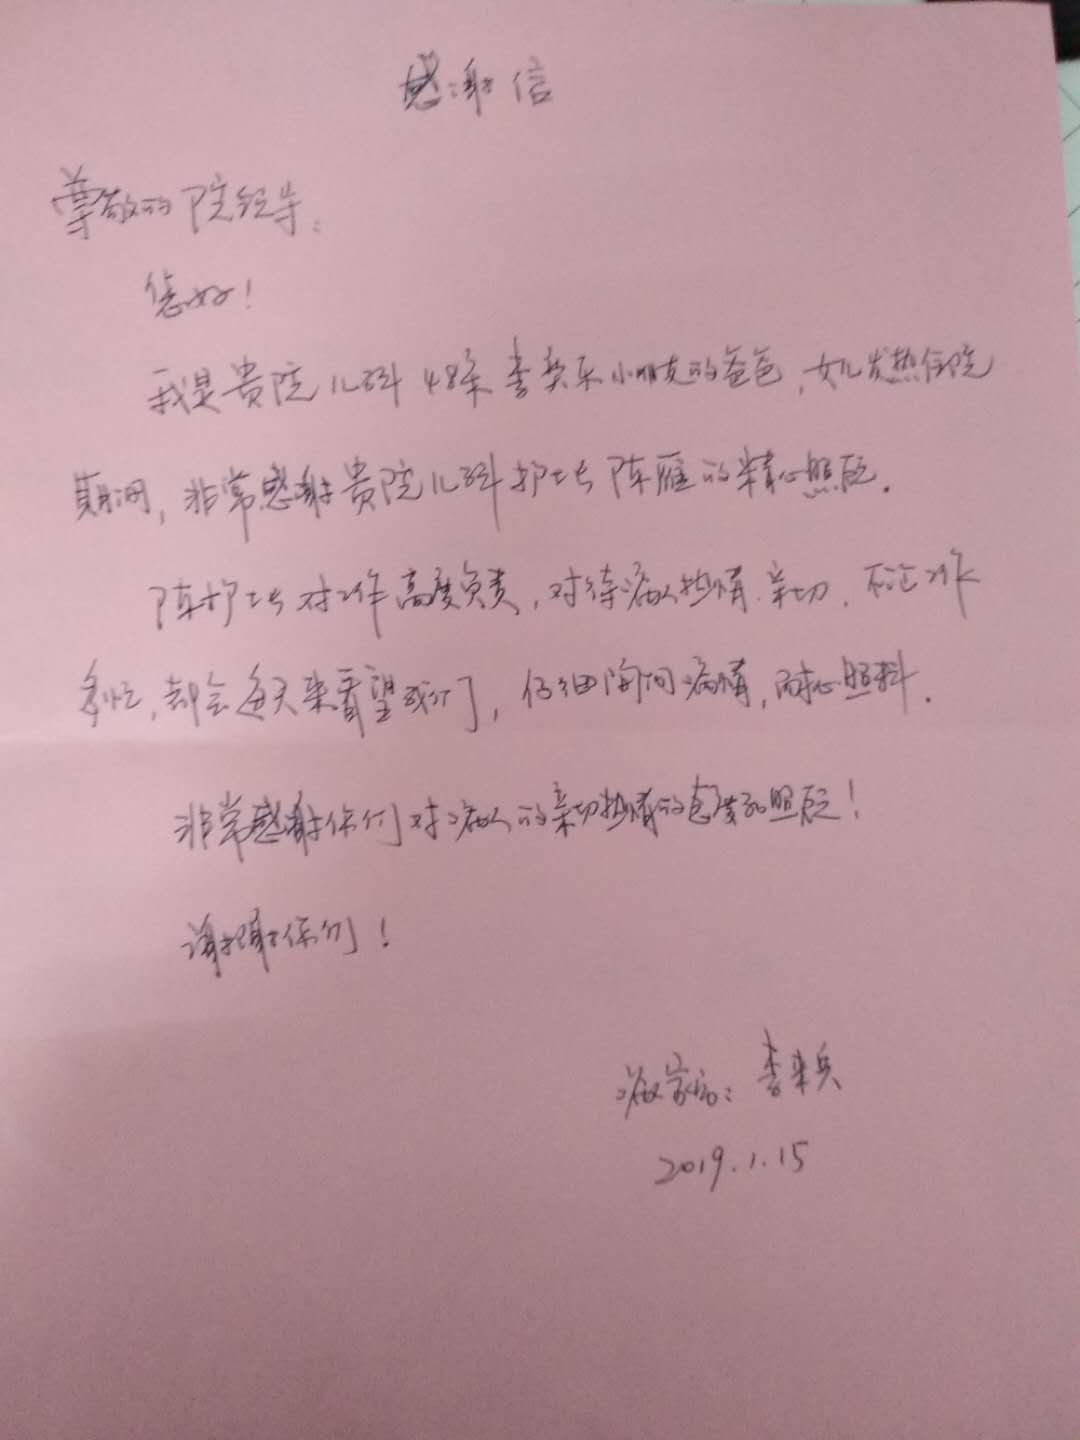 感谢信
尊敬的院领导:
您好!
我是贵院儿科48床李奕乐小朋友的爸爸,女儿发热住院
期间,非常感谢贵院儿科护士长陈雁的精心照顾.
陈护士长对工作高度负责,对待病人热情、亲切,不论工作
多忙,却会每天来看望我们,仔细询问病情,耐心照料.
非常感谢你们对病人的亲切热情的态度和照顾!
谢谢你们!
病人家属:李来兵
2019.1.15